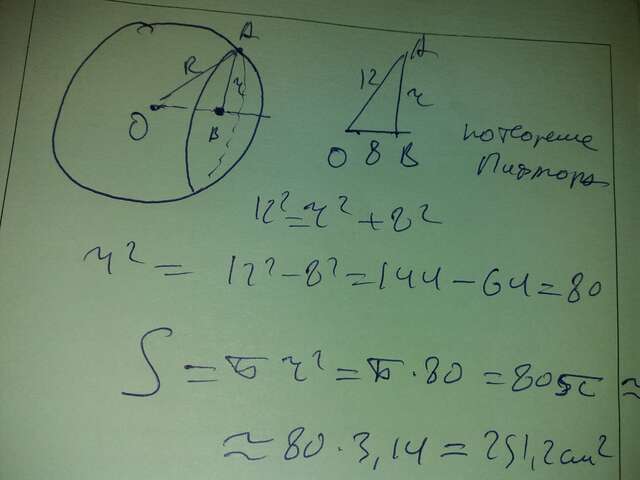 O R A
B r
12 r A
O 8 B
по теореме
Пифагора
12² = r² + 8²
r² = 12² - 8² = 144 - 64 = 80
S = π r² = π · 80 = 80π ≈
≈ 80 · 3,14 = 251,2 см²